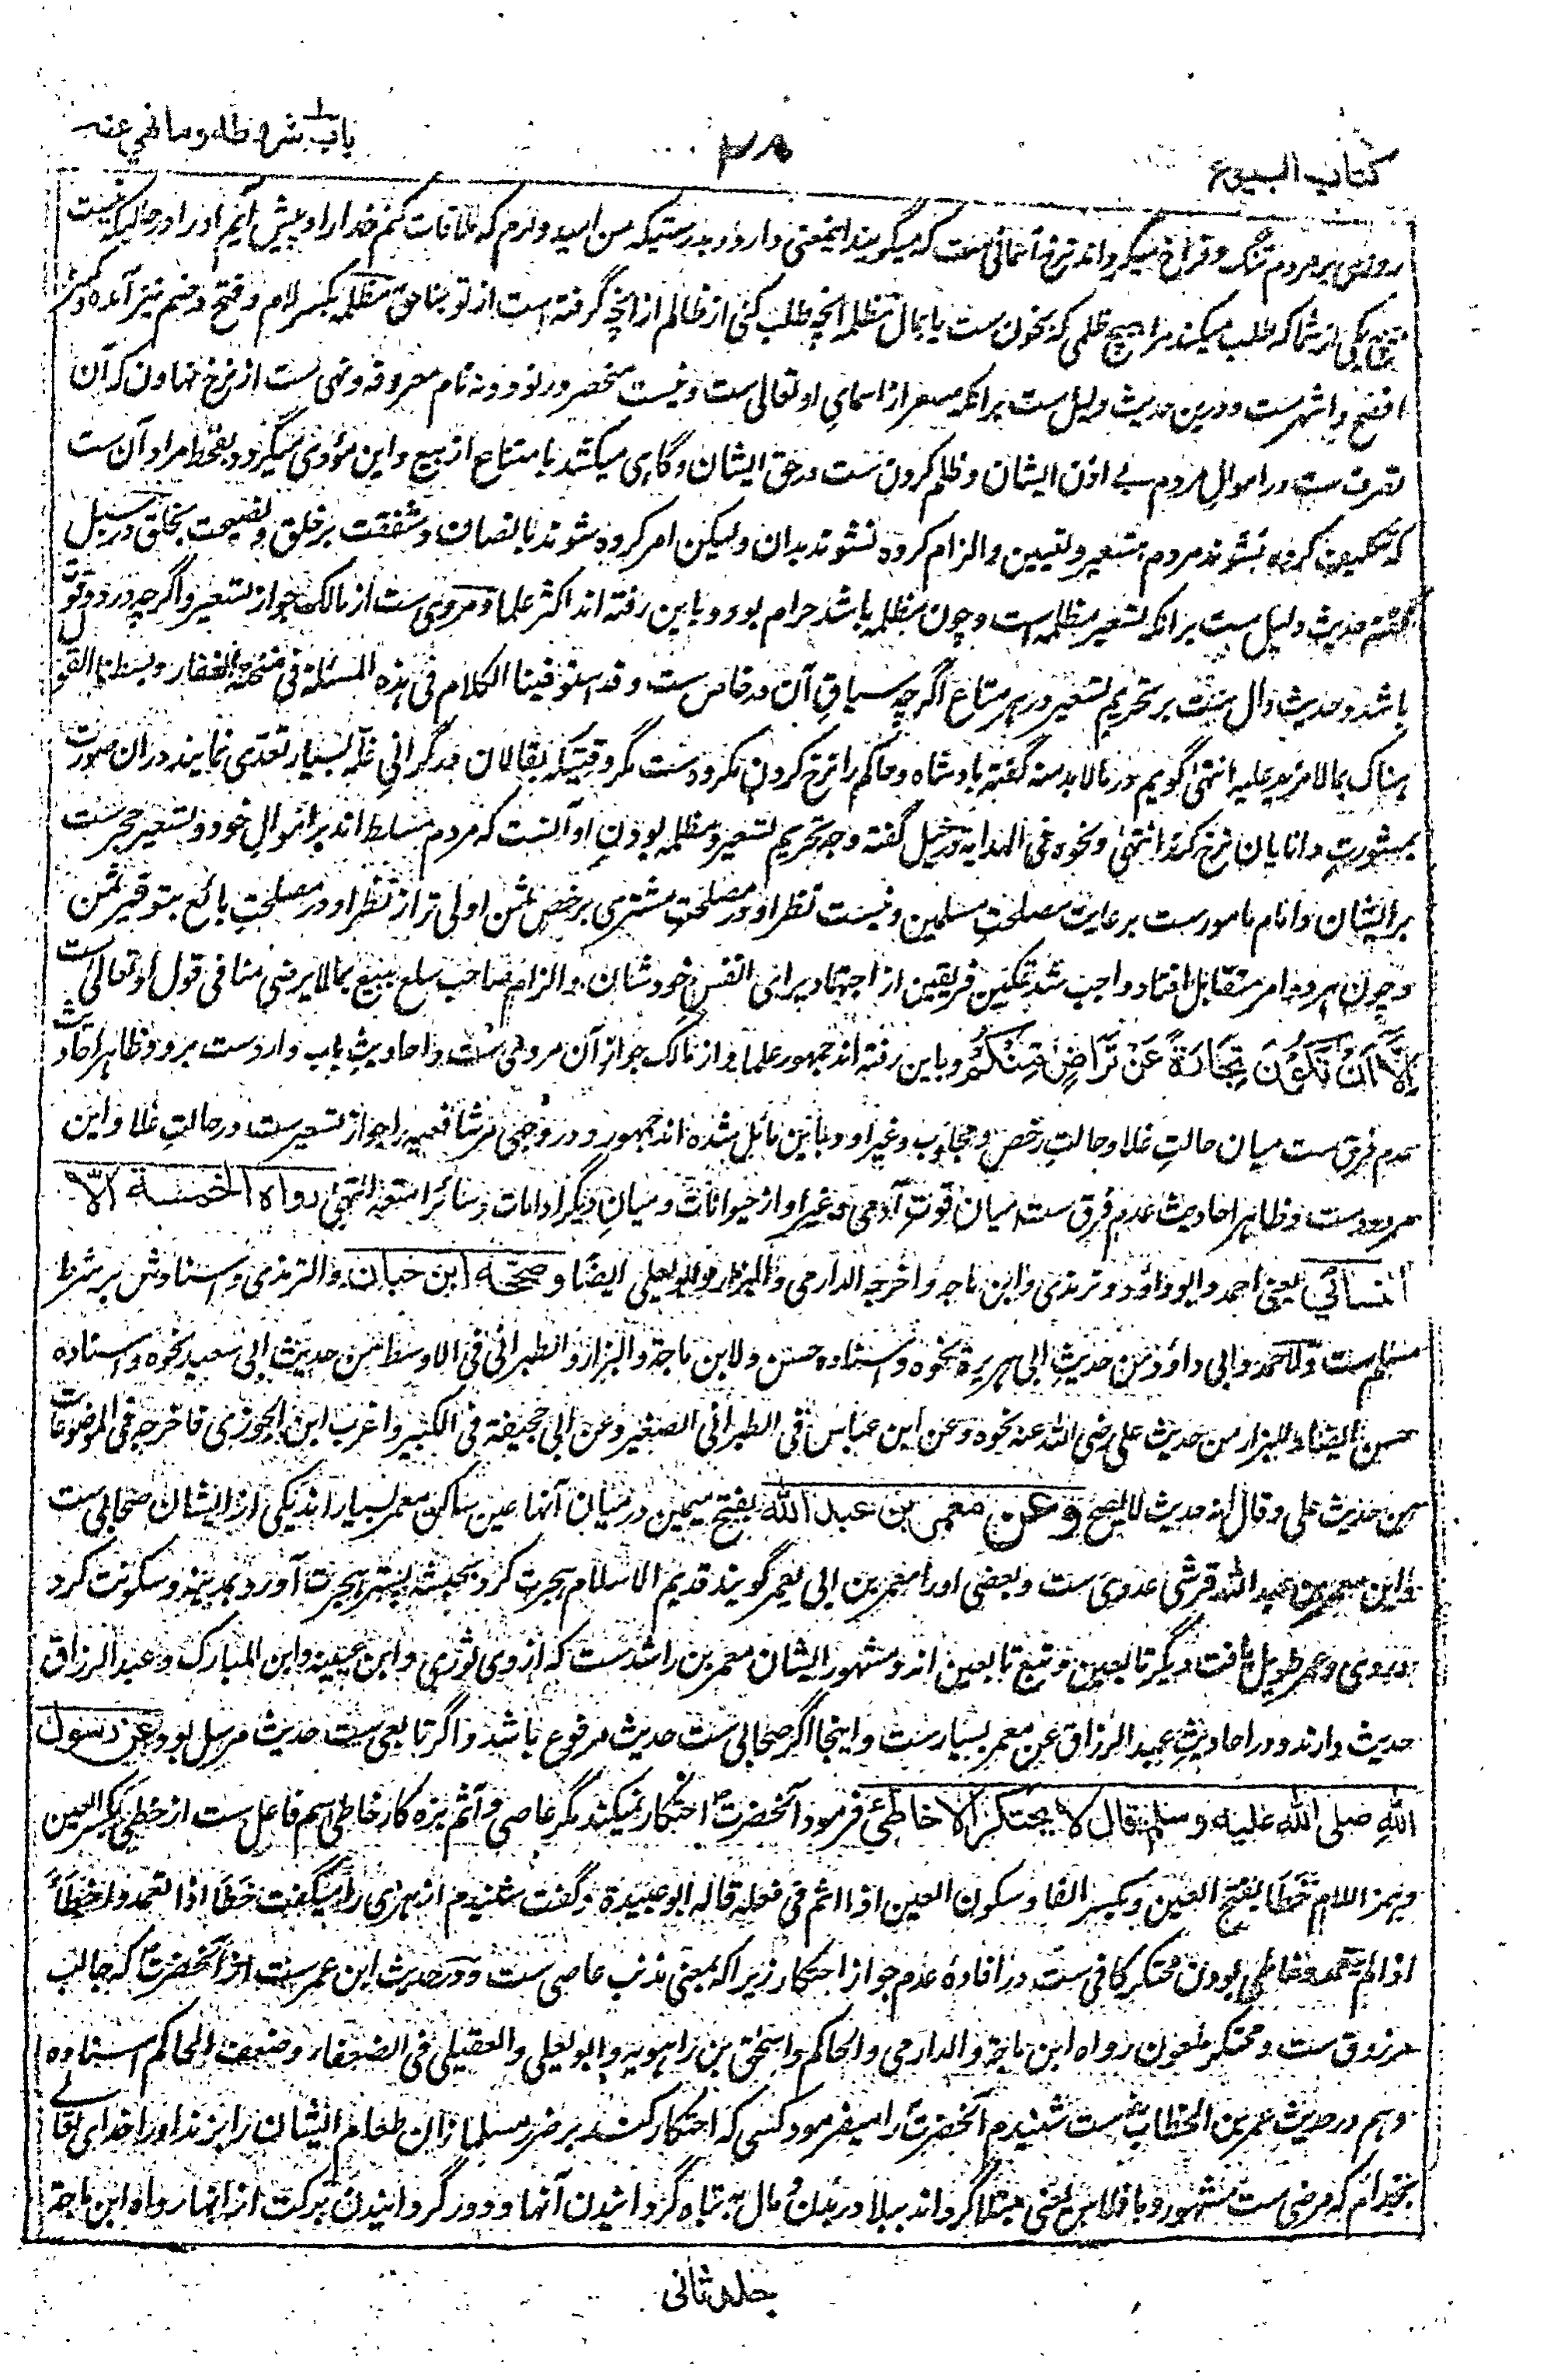 کتاب البیوع
۳۸
باب شروطه وما نهی عنه
روزی بر مردم تنگ و فراخ میگرداند نرخ آسمانی ست که میگویند اینمعنی دارد و بدرستیکه من امید دارم که ملاقات کنم خدا را و پیش آیم او را در حالیکه نیست
یکی از شما که طلب میکند مرا هیچ ظلمی که بخون ست یا بمال مظلمه انچه طلب کنی از ظالم از انچه گرفته است از تو بناحق مظلمه بکسر لام و فتح و ضم نیز آمده و کسر
افصح و اشهرست و درین حدیث دلیل ست برانکه مسعر از اسمای او تعالی ست و نیست منحصر در نود و نه نام معروفه و نهی ست از نرخ نهادن که آن
تصرف ست در اموال مردم بے اذن ایشان و ظلم کردن ست در حق ایشان و گاهی میکشد بامتناع از بیع و این مؤدی میگردد بقحط مراد آن ست
که تکلیف کرده نشوند مردم بتسعیر و تعیین و الزام کرده نشوند بدان ولیکن امر کرده شوند بانصاف و شفقت بر خلق و نصیحت بخلق در سبل
گفته حدیث دلیل ست برانکه تسعیر مظلمه است و چون مظلمه باشد حرام بود و باین رفته اند اکثر علما و مروی ست از مالک جواز تسعیر و اگرچه در دو قوت
باشد و حدیث دال ست بر تحریم تسعیر در هر متاع اگرچه سیاق آن در خاص ست و قد استوفینا الکلام فی هذه المسئلة فی منحة الغفار و بسطنا القول
هناک بما لا مزید علیه انتهی گویم در مالابد منه گفته بادشاه و حاکم را نرخ کردن مکروه ست مگر وقتیکه بقالان در گرانی غله بسیار تعدی نمایند دران صورت
بمشورت دانایان نرخ کند انتهی و نحوه فی الهدایة در نیل گفته وجه تحریم تسعیر و مظلمه بودن او آنست که مردم مسلط اند بر اموال خود و تسعیر حجرست
بر ایشان و امام مامورست برعایت مصلحت مسلمین و نیست نظر او در مصلحت مشتری برخص ثمن اولی تر از نظر او در مصلحت بائع بتوفیر ثمن
و چون هر دو امر متقابل افتاد واجب شد تمکین فریقین از اجتهاد برای انفس خودشان و الزام صاحب سلع ببیع بما لا یرضی منافی قول او تعالی ست
إِلَّا أَنْ تَكُونَ تِجَارَةً عَنْ تَرَاضٍ مِنْكُمْ و باین رفته اند جمهور علما و از مالک جواز آن مروی ست و احادیث باب واردست برو و ظاهر احادیث
عدم فرق ست میان حالت غلا و حالت رخص و مجلوب و غیر او و باین مائل شده اند جمهور و در وجهی مر شافعیه را جواز تسعیرست در حالت غلا و این
مردودست و ظاهر احادیث عدم فرق ست میان قوت آدمی و غیر او از حیوانات و میان دیگر ادامات و سائر امتعه انتهی رواه الخمسة الا
النسائی یعنی احمد و ابو داؤد و ترمذی و ابن ماجه و اخرجه الدارمی و البزار و ابو یعلی ایضًا و صححه ابن حبان و الترمذی و اسنادش بر شرط
مسلم ست و لاحمد و ابی داؤد من حدیث ابی هریرة نحوه و اسناده حسن و لابن ماجة و البزار و الطبرانی فی الاوسط من حدیث ابی سعید نحوه و اسناده
حسن ایضا و للبزار من حدیث علی رضی الله عنه نحوه و عن ابن عباس فی الطبرانی الصغیر و عن ابی جحیفة فی الکبیر و اغرب ابن الجوزی فاخرجه فی الموضوعات
من حدیث علی و قال انه حدیث لا یصح وعن معمر بن عبد الله بفتح میمین درمیان آنها عین ساکن معمر بسیار اند یکی از ایشان صحابی ست
و این معمر بن عبد الله قرشی عدوی ست و بعضی او را معمر بن ابی معمر گویند قدیم الاسلام هجرت کرد بحبشه پستر هجرت آورد بمدینه و سکونت کرد
در وی و عمر طویل یافت دیگر تابعین و تبع تابعین اند و مشهور ایشان معمر بن راشدست که از وی ثوری و ابن عیینه و ابن المبارک و عبد الرزاق
حدیث دارند و در احادیث عبد الرزاق عن معمر بسیارست و اینجا اگر صحابی ست حدیث مرفوع باشد و اگر تابعی ست حدیث مرسل بود عن رسول
الله صلی الله علیه وسلم قال لا یحتکر الا خاطئ فرمود آنحضرت احتکار نمیکند مگر عاصی و آثم بزه کار خاطی اسم فاعل ست از خطی بکسر العین
و همز اللام خطأ بفتح العین و بکسر الفا و سکون العین اذا اثم فی فعله قاله ابو عبیدة و گفت شنیدم ازهری را میگفت خطأ اذا تعمد و اخطأ
اذا لم یتعمد و خاطی بودن محتکر کافی ست در افادهٔ عدم جواز احتکار زیرا که بمعنی مذنب عاصی ست و در حدیث ابن عمر ست از آنحضرت که جالب
مرزوق ست و محتکر ملعون رواه ابن ماجة و الدارمی و الحاکم و اسحق بن راهویه و ابو یعلی و العقیلی فی الضعفاء و ضعف الحاکم اسناده
و هم در حدیث عمر بن الخطاب ست شنیدم آنحضرت را میفرمود کسی که احتکار کند بر ضرر مسلمانان طعام ایشان را بزند او را خدای تعالے
بجذام که مرضی ست مشهور و بافلاس یعنی مبتلا گرداند ببلا در بدن مال به تباه گردانیدن آنها و دور گردانیدن برکت از انها رواه ابن ماجة
جلد ثانی